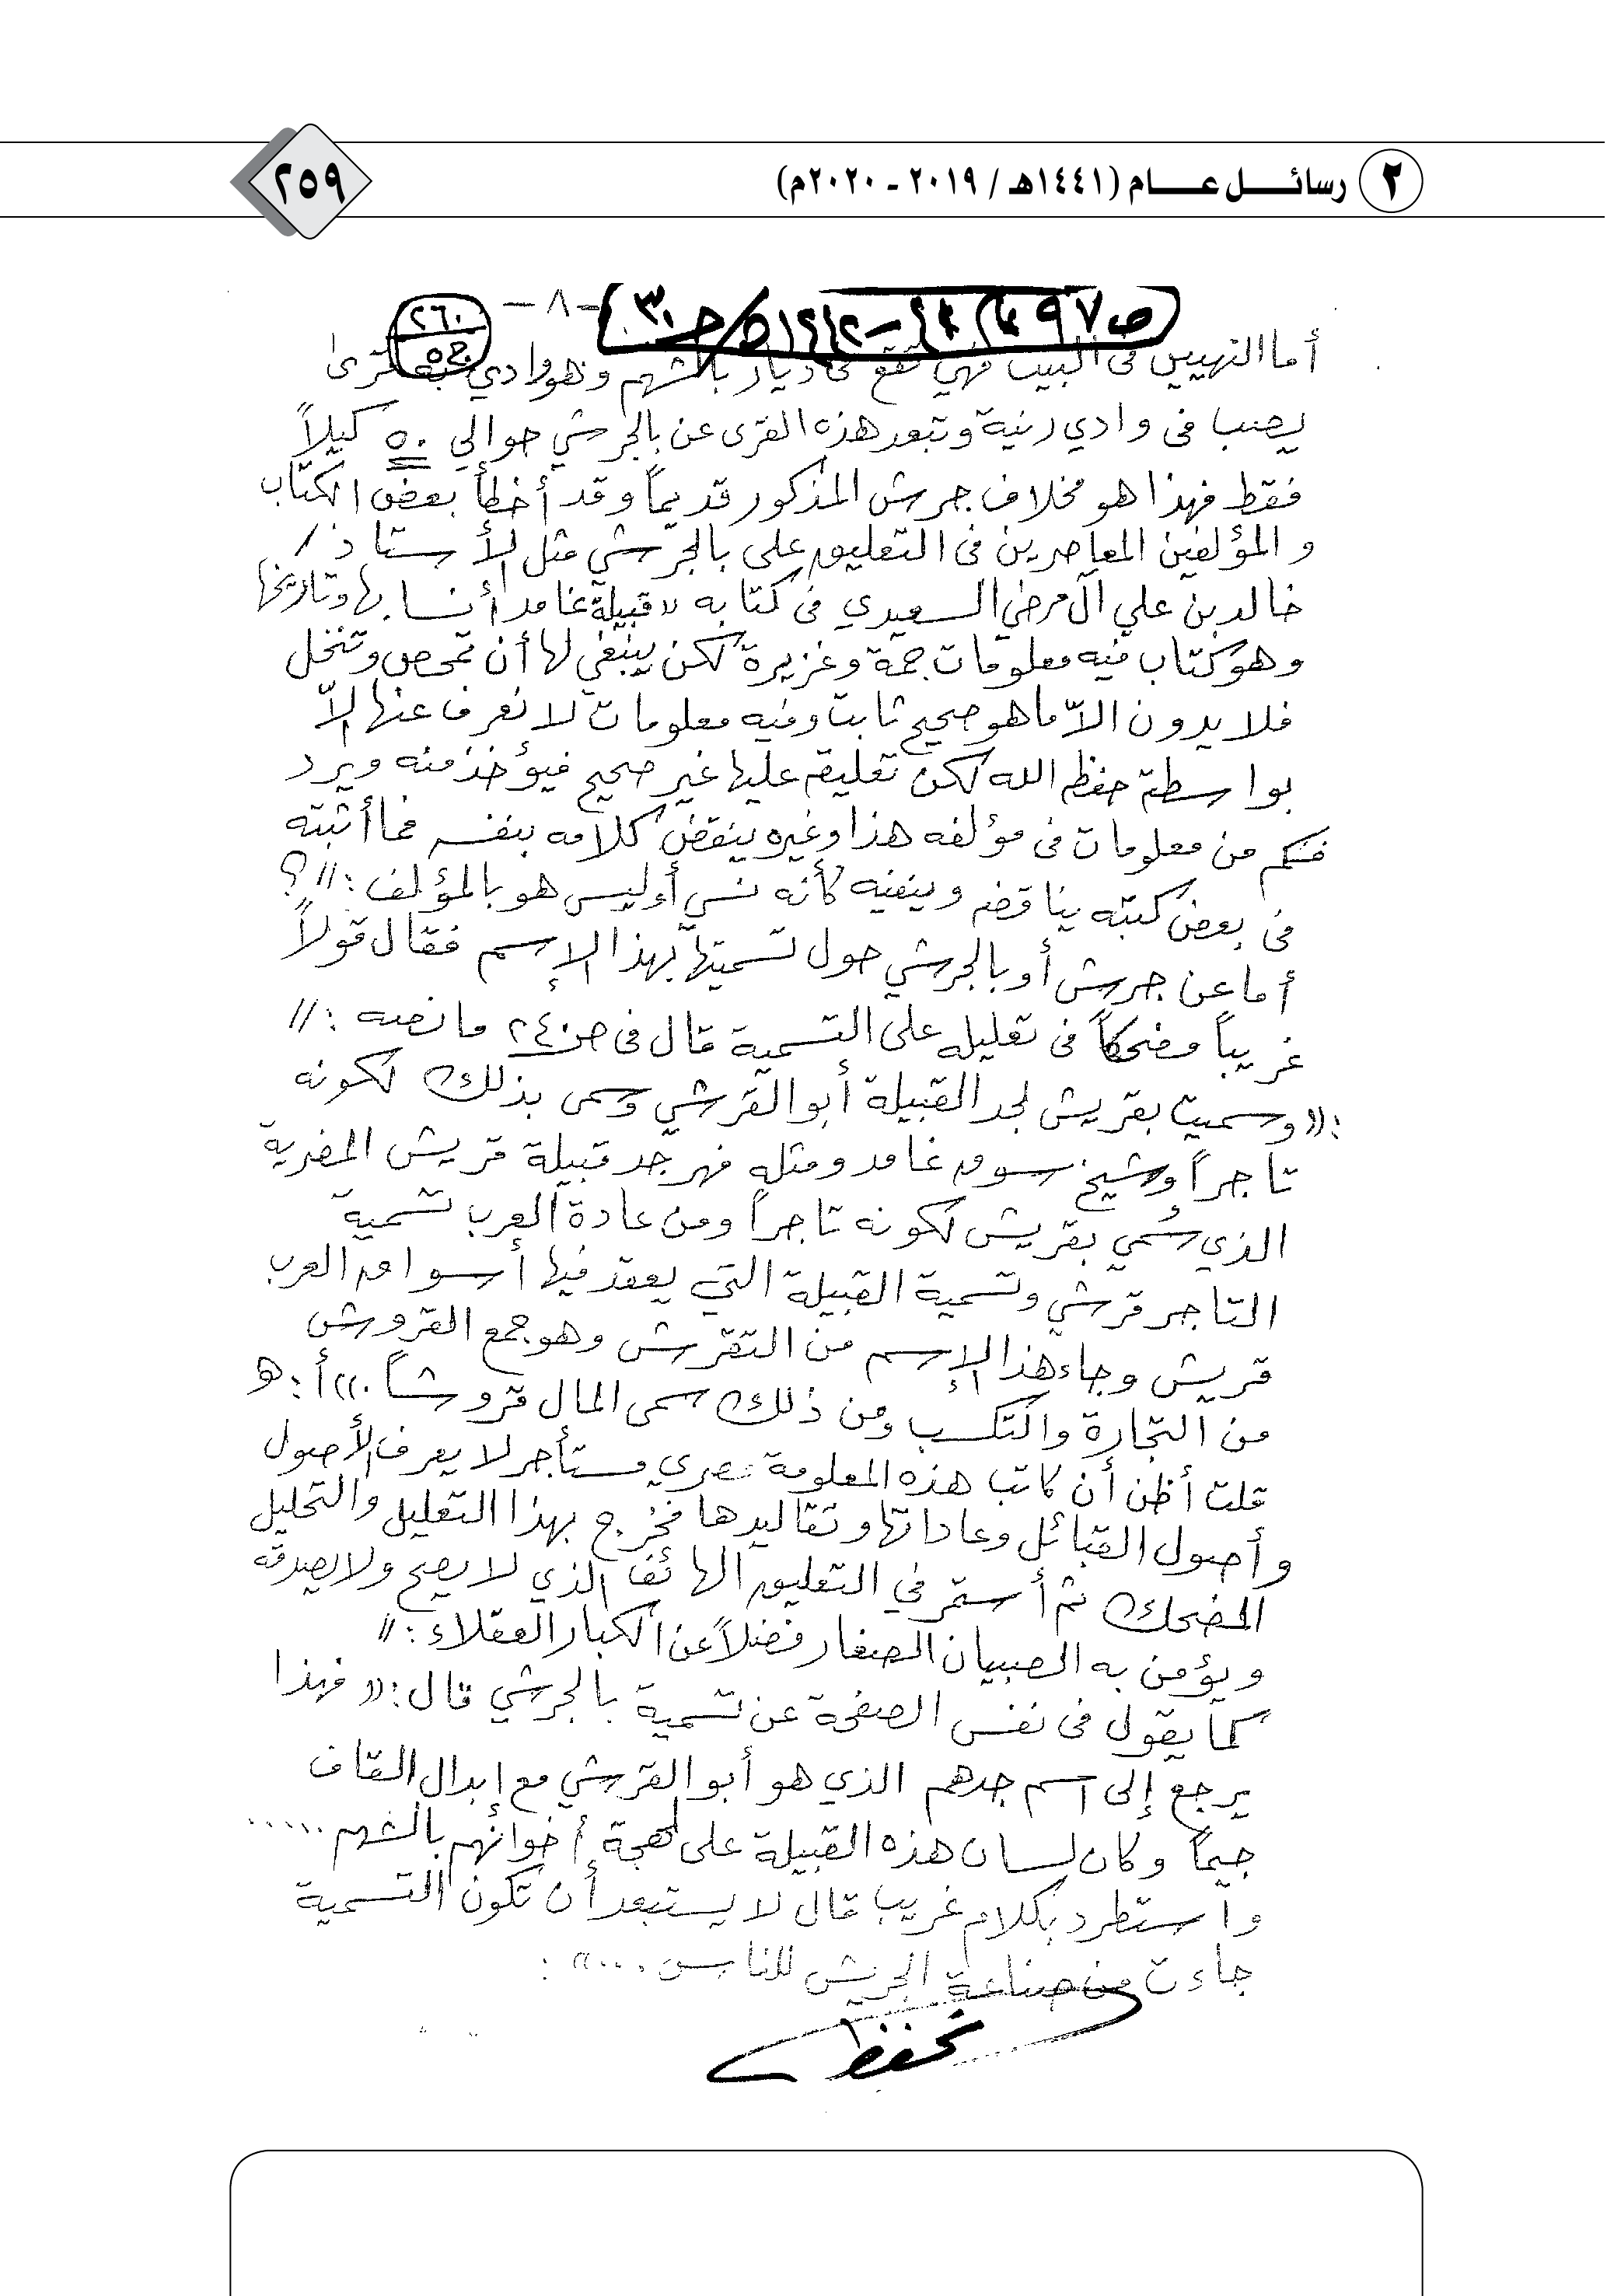 ٢ رسائـــل عـــام (١٤٤١هـ / ٢٠١٩ ـ ٢٠٢٠م)
٢٥٩
-٨-
٢٦٠
أما النهيين فى البيت فهي تقع فى ديار بالشهم وهو وادي به قرى
يصب فى وادي رنية وتبعد هذه القرى عن بالجرشي حوالي ٥٠ كيلاً
فقط فهذا هو مخلاف جرش المذكور قديماً وقد أخطأ بعض الكتّاب
والمؤلفين المعاصرين فى التعليق على بالجرشي مثل الأستاذ /
خالد بن علي آل مرضي السعيدي فى كتابه «قبيلة غامد أنسابها وتاريخها
وهو كتاب فيه معلومات جمة وغزيرة لكن ينبغي لها أن تمحص وتنخل
فلا يدون الاّ ما هو صحيح ثابت وفيه معلومات لا نعرف عنها إلاّ
بواسطة حفظه الله لكن تعليقه عليها غير صحيح فيؤخذ منه ويرد
فكم من معلومات فى مؤلفه هذا وغيره ينقض كلامه بنفسه فما أثبته
فى بعض كتبه يناقضه وينفيه كأنه نسي أوليس هو بالمؤلف : // ؟
أما عن جرش أو بالجرشي حول تسميتها بهذا الإسم فقال قولاً
غريباً مضحكاً فى تعليله على التسمية قال فى ص ٢٤٠ ما نصه : //
:« وسميت بقريش لجد القبيلة أبو القرشي وسمى بذلك لكونه
تاجراً وشيخ سوق غامد ومثله فهر جد قبيلة قريش المضرية
الذي سُمي بقريش لكونه تاجراً ومن عادة العرب تسمية
التاجر قرشي وتسمية القبيلة التي يعقد فيها أسواق العرب
قريش وجاء هذا الإسم من التقرش وهو جمع القروش
من التجارة والتكسب ومن ذلك سمى المال قروشاً .» أ : هـ
قلت أظن أن كاتب هذه المعلومة مصري مستأجر لا يعرف الأصول
وأصول القبائل وعاداتها وتقاليدها فخرج بهذا التعليل والتحليل
المضحك ثم أستمر في التعليق الهائف الذي لا يصح ولا يصدقه
ويؤمن به الصبيان الصغار فضلاً عن الكبار العقلاء : //
كما يقول فى نفس الصفحة عن تسمية بالجرشي قال :« فهذا
يرجع إلى اسم جدهم الذي هو أبو القرشي مع إبدال القاف
جيماً وكان لسان هذه القبيلة على لهجة أخوانهم بالشهم .....
واستطرد بكلام غريب قال لا يستبعد أن تكون التسمية
جاءت من صناعة الجريش للناس ...» :
تحفظ